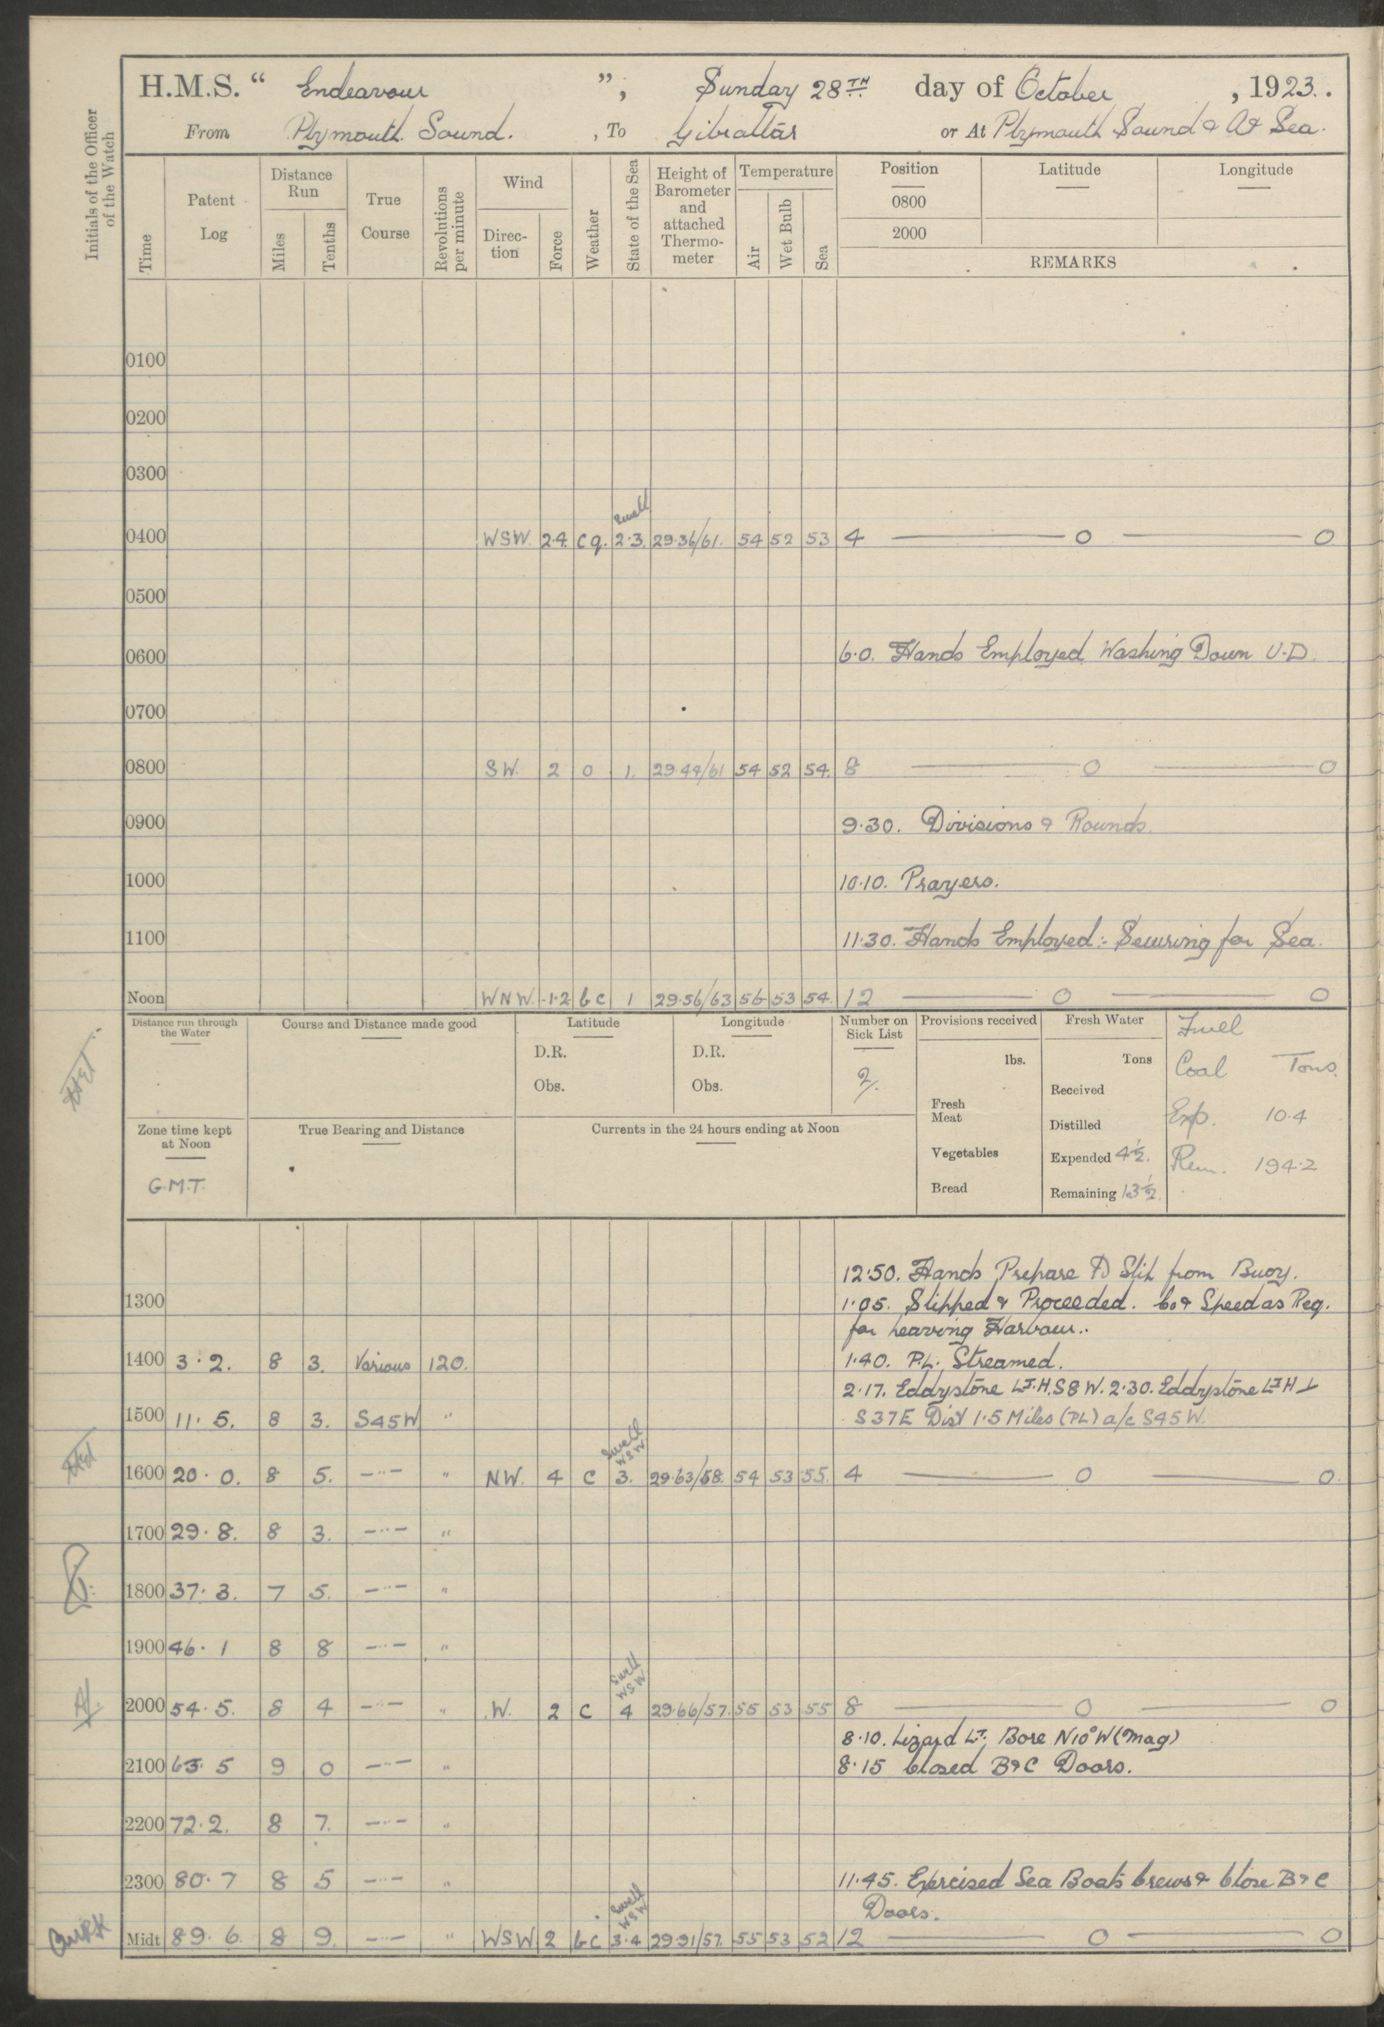 H.M.S. “ Endeavour ”, Sunday 28TH day of October , 1923.
From Plymouth Sound. , To Gibraltar or At Plymouth Sound & At Sea.
Initials of the Officer of the Watch
Time
Patent Log
Distance Run
Miles
Tenths
True Course
Revolutions per minute
Wind
Direc-tion
Force
Weather
State of the Sea
Height of Barometer and attached Thermo-meter
Temperature
Air
Wet Bulb
Sea
Position Latitude Longitude
0800
2000
REMARKS
0100
0200
0300
Swell
0400 WSW. 2.4. c q. 2.3. 29.36/61. 54 52 53 4 — 0 — 0
0500
0600 6.0. Hands Employed Washing Down U.D.
0700
0800 SW. 2 0 1. 29.44/61 54 52 54. 8 — 0 — 0
0900 9.30. Divisions & Rounds.
1000 10.10. Prayers.
1100 11.30. Hands Employed:- Securing for Sea.
Noon WNW. 1.2 bc 1 29.56/63 56 53 54. 12 — 0 — 0
Distance run through the Water
Course and Distance made good
Latitude
D.R.
Obs.
Longitude
D.R.
Obs.
Number on Sick List
2.
Provisions received
lbs.
Fresh Meat
Vegetables
Bread
Fresh Water
Tons
Received
Distilled
Expended 4½.
Remaining 13½.
Fuel
Coal Tons.
Exp. 10.4
Rem. 194.2
Zone time kept at Noon
G.M.T.
True Bearing and Distance
Currents in the 24 hours ending at Noon
12.50. Hands Prepare to Slip from Buoy.
1300 1.05. Slipped & Proceeded. Co & Speed as Req.
for Leaving Harbour..
1400 3.2. 8 3. Various 120. 1.40. P.L. Streamed.
2.17. Eddystone LT.H. S8W. 2.30. Eddystone LT H ⊥
1500 11.5. 8 3. S45W " S37E Dist 1.5 Miles (PL) a/c S45W.
Swell WSW
1600 20.0. 8 5. —"— " NW. 4 c 3. 29.63/58. 54 53 55. 4 — 0 — 0.
1700 29.8. 8 3. —"— "
1800 37.3. 7 5. —"— "
1900 46.1 8 8 —"— "
Swell WSW
2000 54.5. 8 4 —"— " W. 2 c 4 29.66/57. 55 53 55 8 — 0 — 0
8.10. Lizard LT. Bore N10°W (Mag)
2100 63.5 9 0 —"— " 8.15 Closed B&C Doors.
2200 72.2. 8 7. —"— "
2300 80.7 8 5 —"— " 11.45. Exercised Sea Boats Crews & Close B&C
Doors.
Swell WSW
Midt 89.6. 8 9. —"— " WSW 2 bc 3.4 29.91/57. 55 53 52 12 — 0 — 0